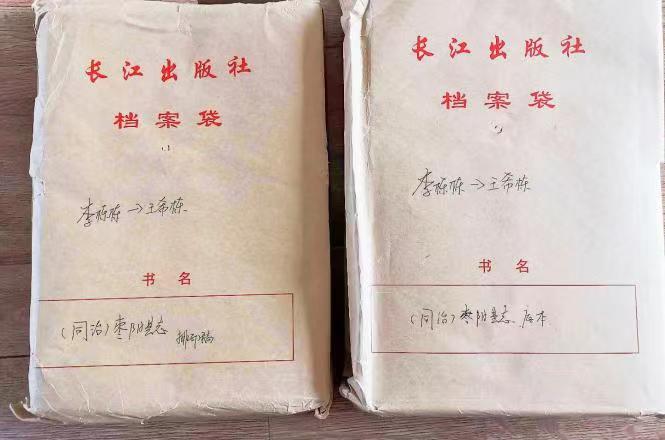 长江出版社
档案袋
李栋栋→王希栋
书名
(同治)枣阳县志 排印稿
长江出版社
档案袋
李栋栋→王希栋
书名
(同治)枣阳县志 底本